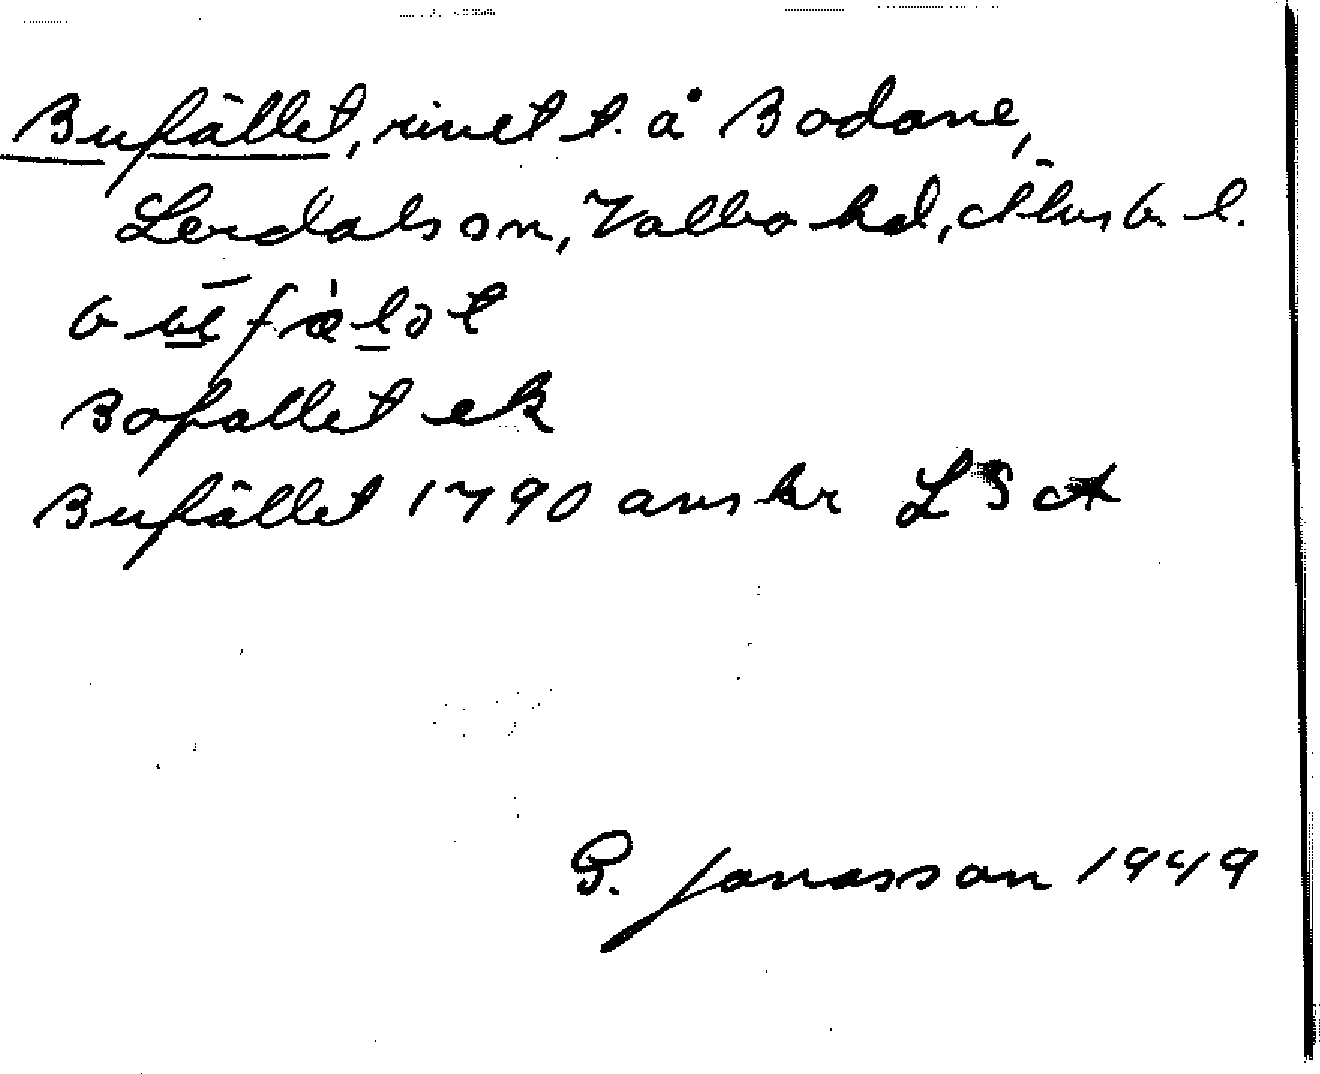 Bufället, rivet t. å Bodane,
Lerdals sn, Valbo hd, Älvsb. l.
bu̲̅fæ̀l̲ət
Bofallet ek
Bufället 1790 avskr LSA
G. Jonasson 1949